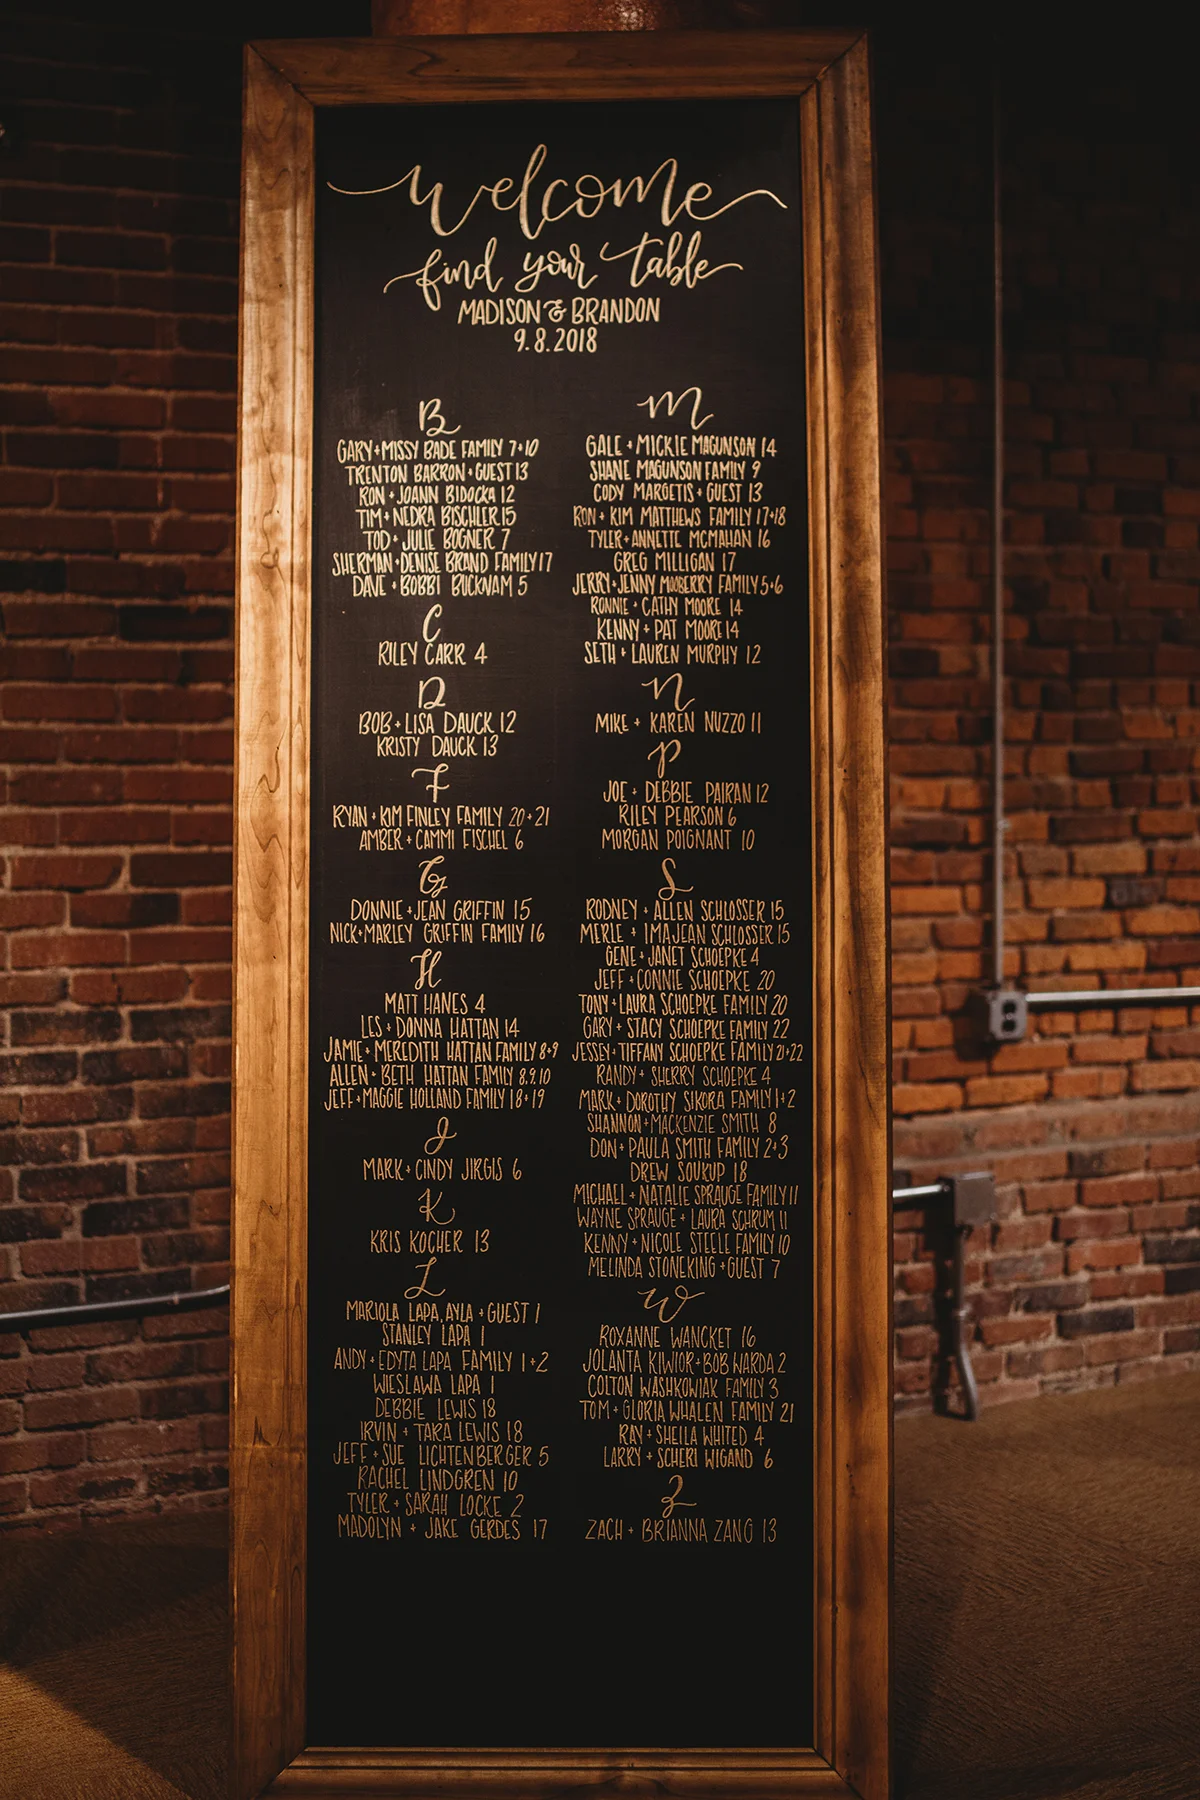 welcome
find your table
MADISON & BRANDON
9.8.2018
B
GARY + MISSY BADE FAMILY 7+10
TRENTON BARRON + GUEST 13
RON + JOANN BIDOCKA 12
TIM + NEDRA BISCHLER 15
TOD + JULIE BOGNER 7
SHERMAN + DENISE BRAND FAMILY 17
DAVE + BOBBI BUCKNAM 5
C
RILEY CARR 4
D
BOB + LISA DAUCK 12
KRISTY DAUCK 13
F
RYAN + KIM FINLEY FAMILY 20+21
AMBER + CAMMI FISCHEL 6
G
DONNIE + JEAN GRIFFIN 15
NICK + MARLEY GRIFFIN FAMILY 16
H
MATT HANES 4
LES + DONNA HATTAN 14
JAMIE + MEREDITH HATTAN FAMILY 8+9
ALLEN + BETH HATTAN FAMILY 8,9,10
JEFF + MAGGIE HOLLAND FAMILY 18+19
J
MARK + CINDY JIRGIS 6
K
KRIS KOCHER 13
L
MARIOLA LAPA, AYLA + GUEST 1
STANLEY LAPA 1
ANDY + EDYTA LAPA FAMILY 1+2
WIESLAWA LAPA 1
DEBBIE LEWIS 18
IRVIN + TARA LEWIS 18
JEFF + SUE LICHTENBERGER 5
RACHEL LINDGREN 10
TYLER + SARAH LOCKE 2
MADOLYN + JAKE GERDES 17
M
GALE + MICKIE MAGUNSON 14
SHANE MAGUNSON FAMILY 9
CODY MARGETIS + GUEST 13
RON + KIM MATTHEWS FAMILY 17+18
TYLER + ANNETTE MCMAHAN 16
GREG MILLIGAN 17
JERRY + JENNY MOOBERRY FAMILY 5+6
RONNIE + CATHY MOORE 14
KENNY + PAT MOORE 14
SETH + LAUREN MURPHY 12
N
MIKE + KAREN NUZZO 11
P
JOE + DEBBIE PAIRAN 12
RILEY PEARSON 6
MORGAN POIGNANT 10
S
RODNEY + ALLEN SCHLOSSER 15
MERLE + IMAJEAN SCHLOSSER 15
GENE + JANET SCHOEPKE 4
JEFF + CONNIE SCHOEPKE 20
TONY + LAURA SCHOEPKE FAMILY 20
GARY + STACY SCHOEPKE FAMILY 22
JESSEY + TIFFANY SCHOEPKE FAMILY 21+22
RANDY + SHERRY SCHOEPKE 4
MARK + DOROTHY SIKORA FAMILY 1+2
SHANNON + MACKENZIE SMITH 8
DON + PAULA SMITH FAMILY 2+3
DREW SOUKUP 18
MICHAEL + NATALIE SPRAUGE FAMILY 11
WAYNE SPRAUGE + LAURA SCHRUM 11
KENNY + NICOLE STEELE FAMILY 10
MELINDA STONEKING + GUEST 7
W
ROXANNE WANCKET 16
JOLANTA KIWIOR + BOB WARDA 2
COLTON WASHKOWIAK FAMILY 3
TOM + GLORIA WHALEN FAMILY 21
RAY + SHEILA WHITED 4
LARRY + SCHERI WIGAND 6
Z
ZACH + BRIANNA ZANG 13